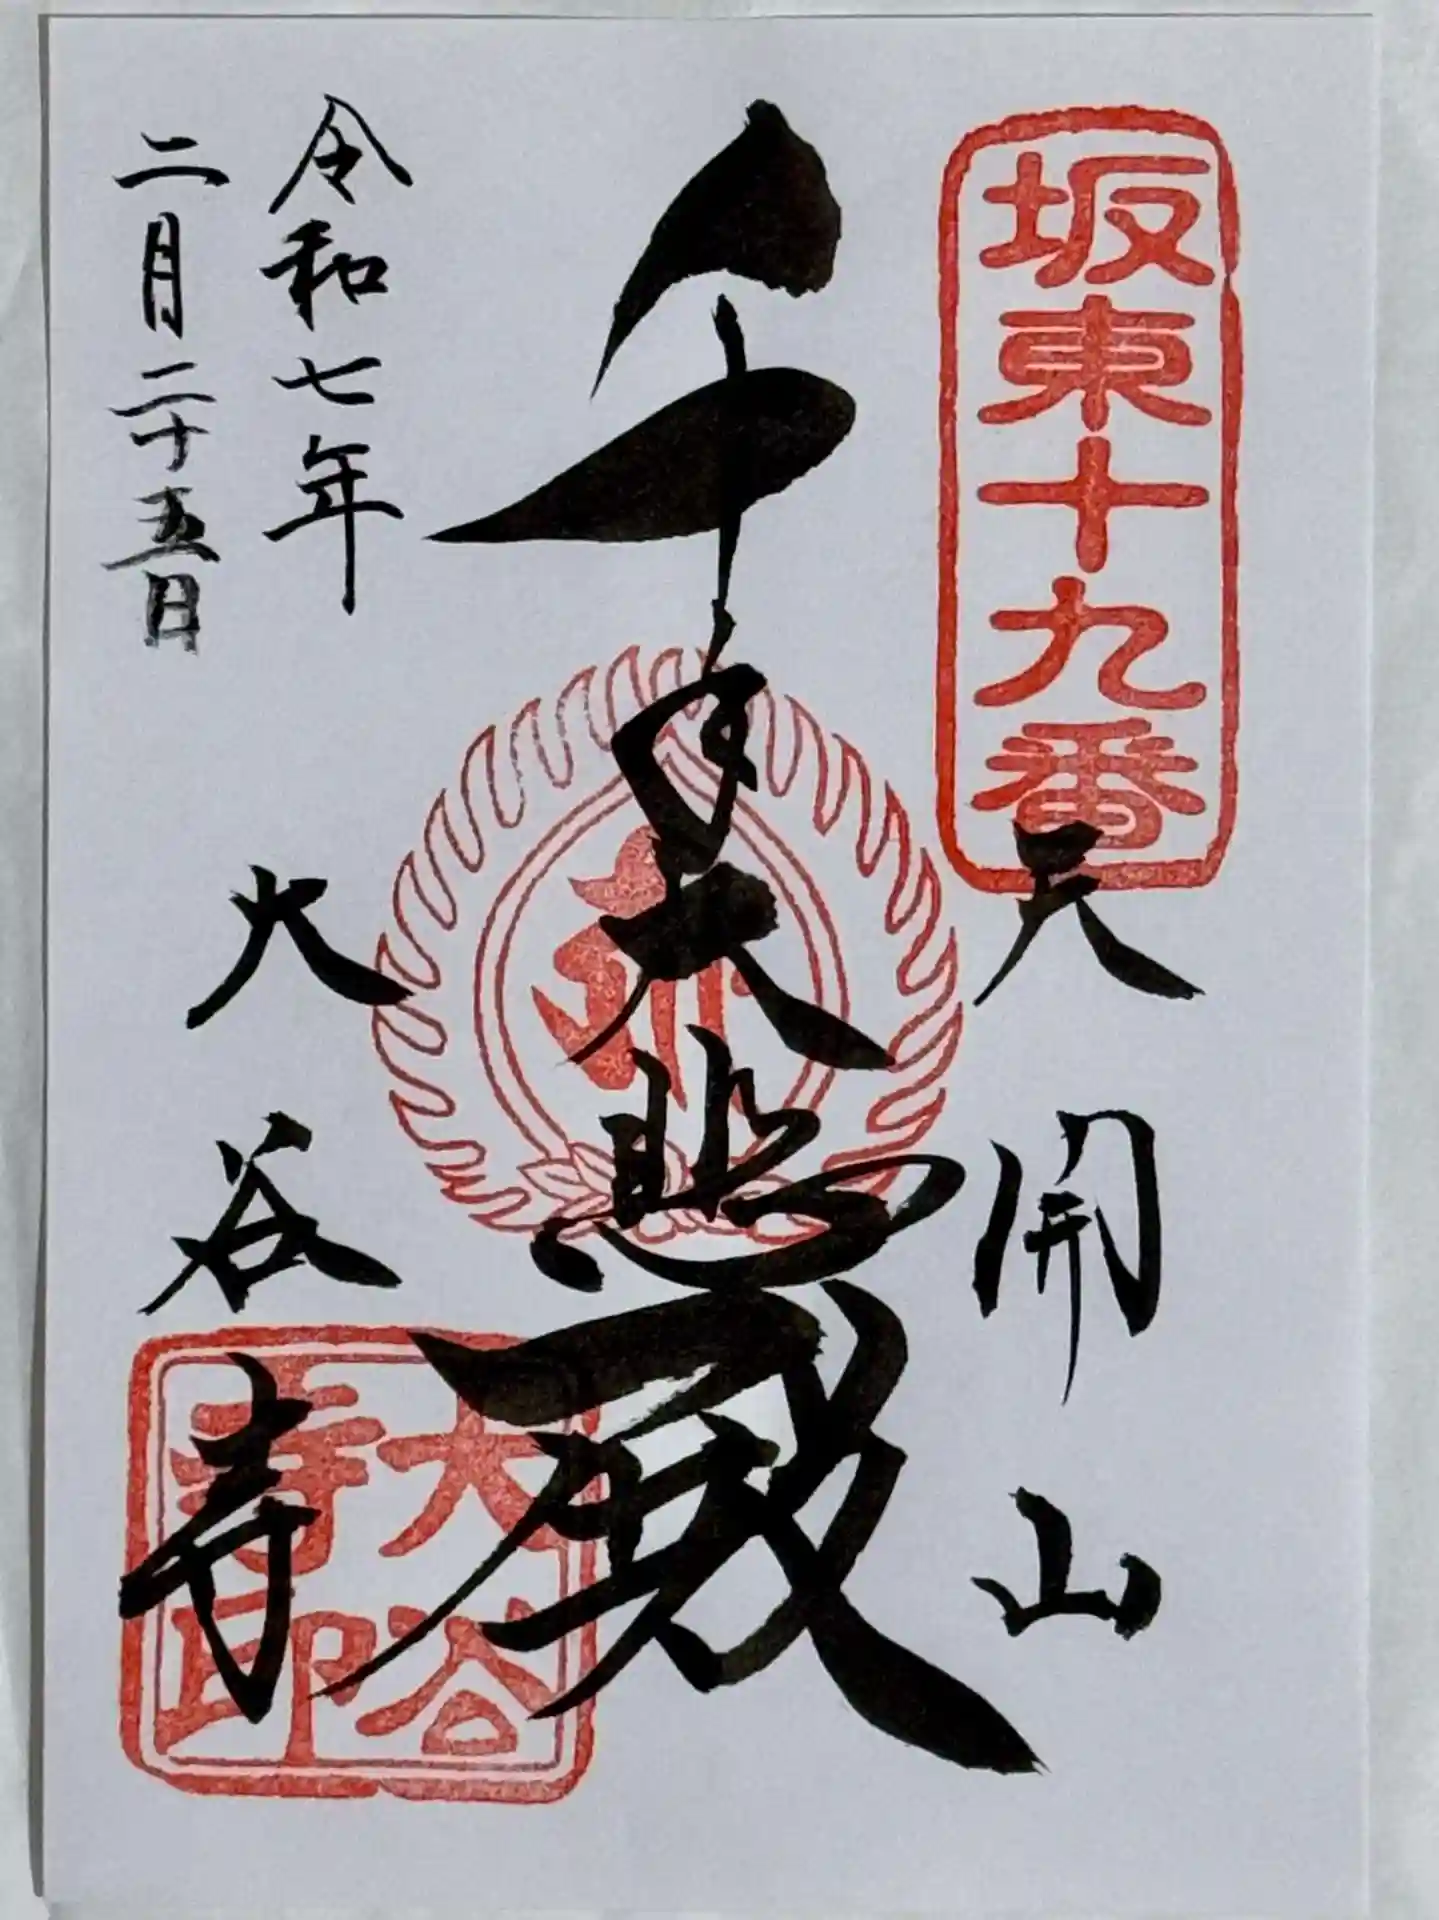 坂東十九番
天開山
千手大悲殿
令和七年
二月二十五日
大谷寺
大谷寺印